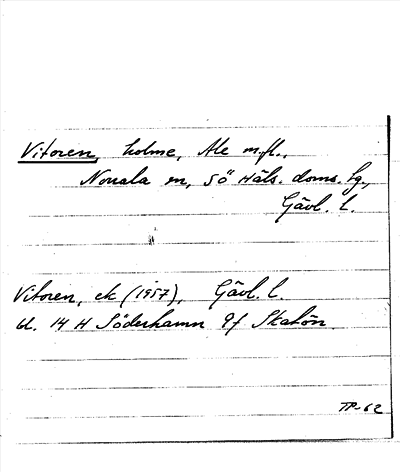 Vitoren, holme, Ale m.fl.,
Norrala sn, Sö Häls. doms. fg.,
Gävl. l.
Vitoren, ek (1957), Gävl. l.
bl. 14 H Söderhamn 9f Skatön
TP-62